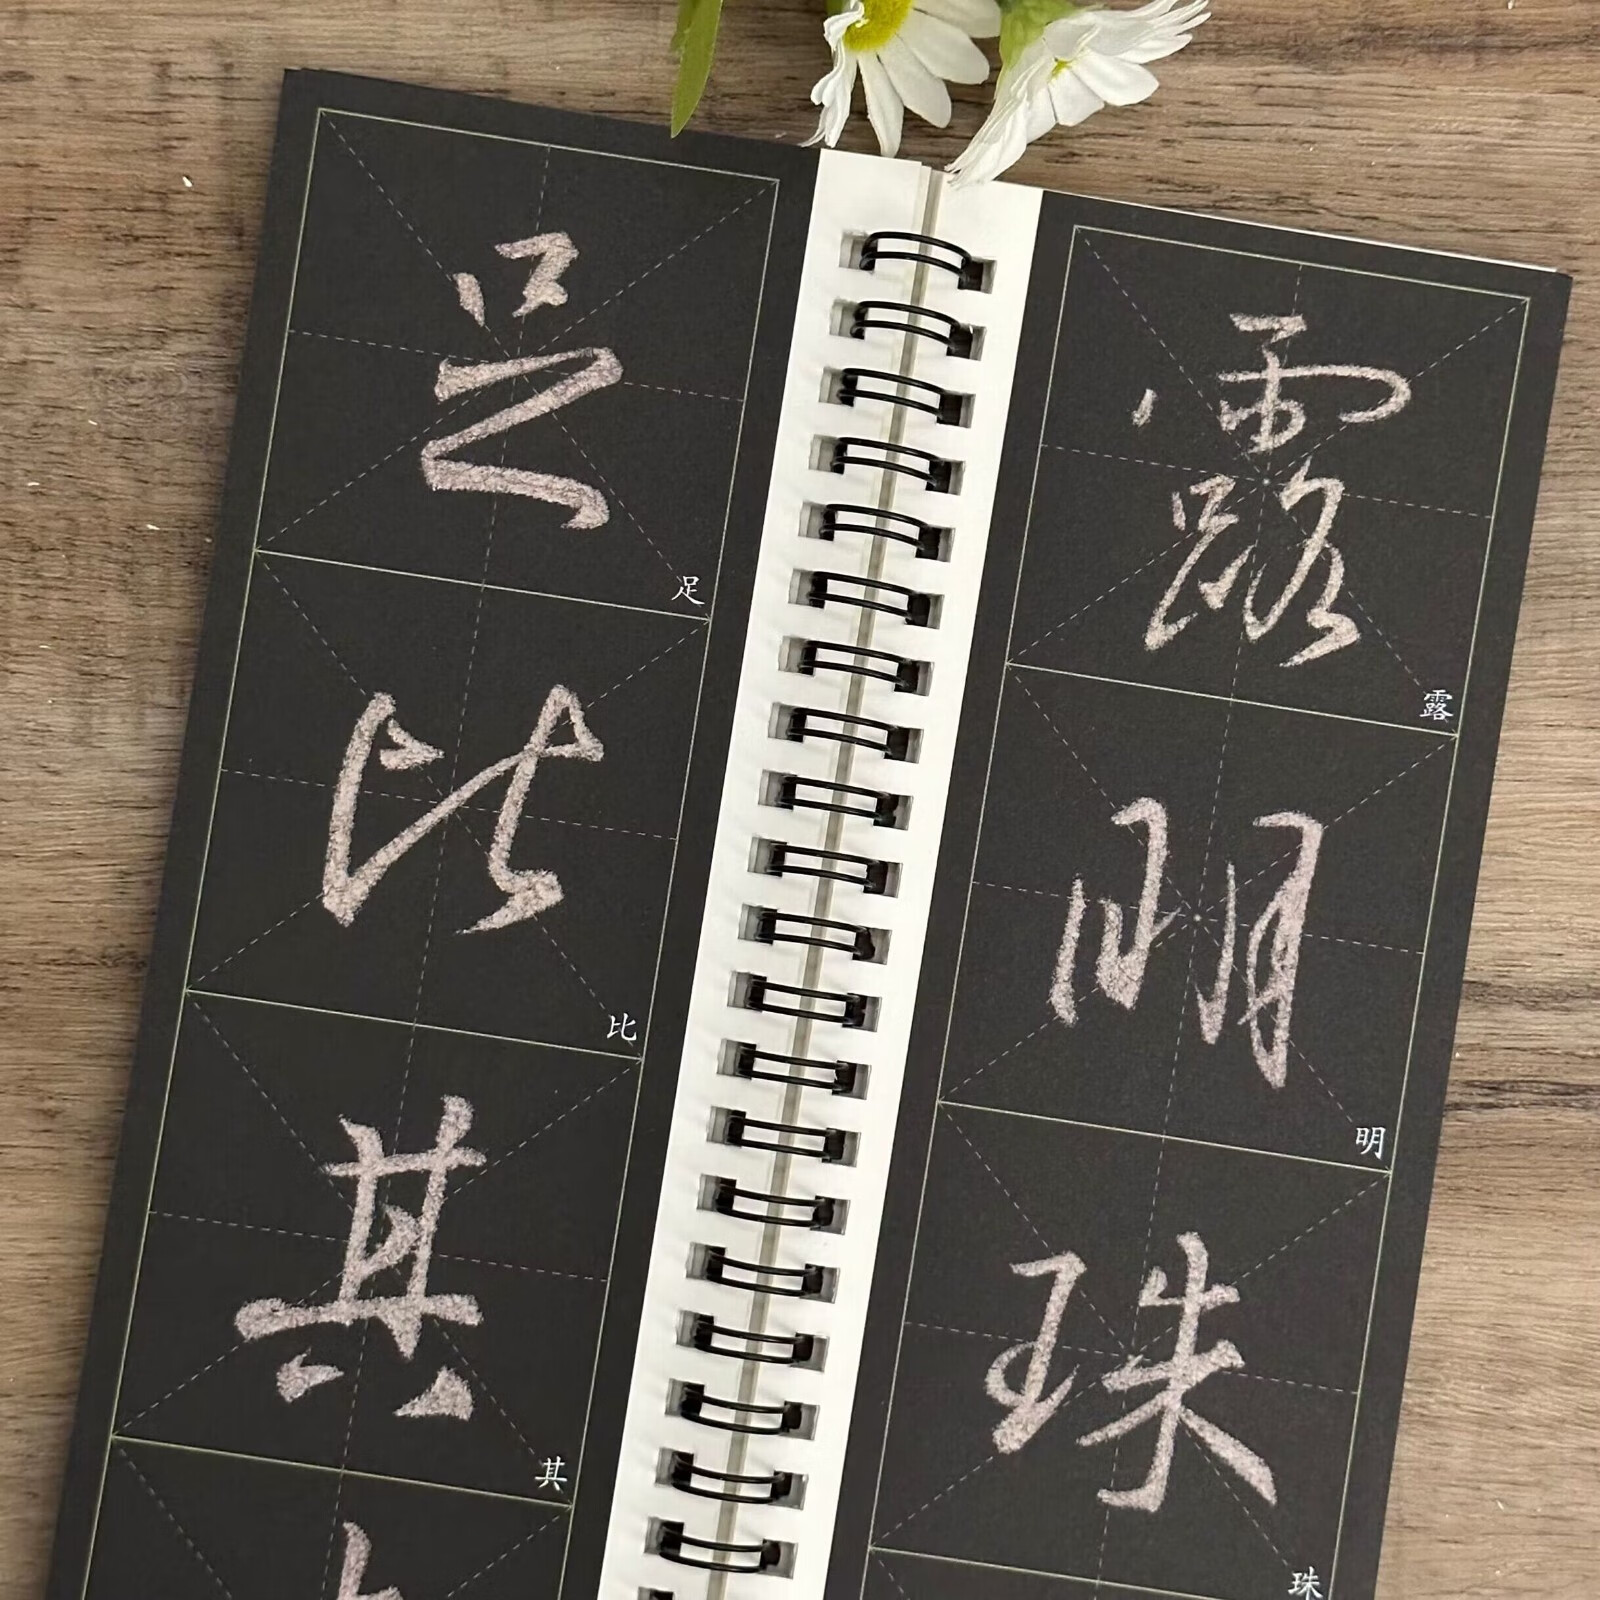 足
足
比
比
其
其
露
露
明
明
珠
珠